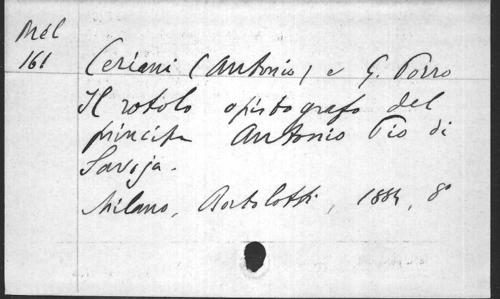 Mél
161
Ceriani (Antonio) e G. Porro
Il rotolo opistografo del
principe Antonio Pio di
Savoja.
Milano, Bortolotti, 1884, 8°